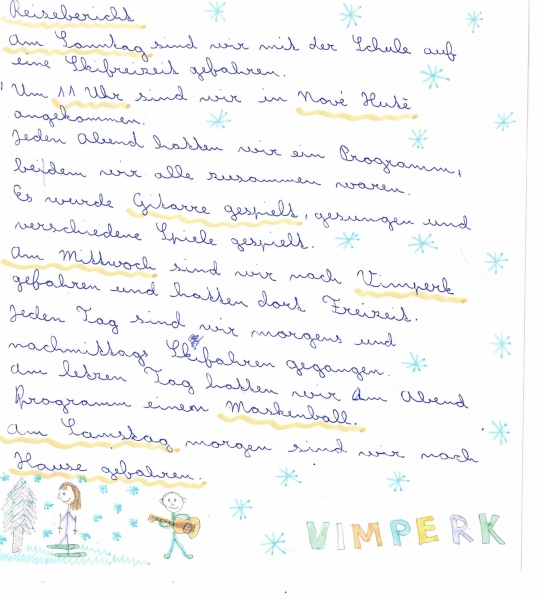 Reisebericht
Am Sonntag sind wir mit der Schule auf
eine Skifreizeit gefahren.
Um 11 Uhr sind wir in Nové Hutě
angekommen.
Jeden Abend hatten wir ein Programm,
bei dem wir alle zusammen waren.
Es wurde Gitarre gespielt, gesungen und
verschiedene Spiele gespielt.
Am Mittwoch sind wir nach Vimperk
gefahren und hatten dort Freizeit.
Jeden Tag sind wir morgens und
nachmittags Skifahren gegangen.
Am letzen Tag hatten wir am Abend
Programm einem Maskenball.
Am Samstag morgen sind wir nach
Hause gefahren.
VIMPERK